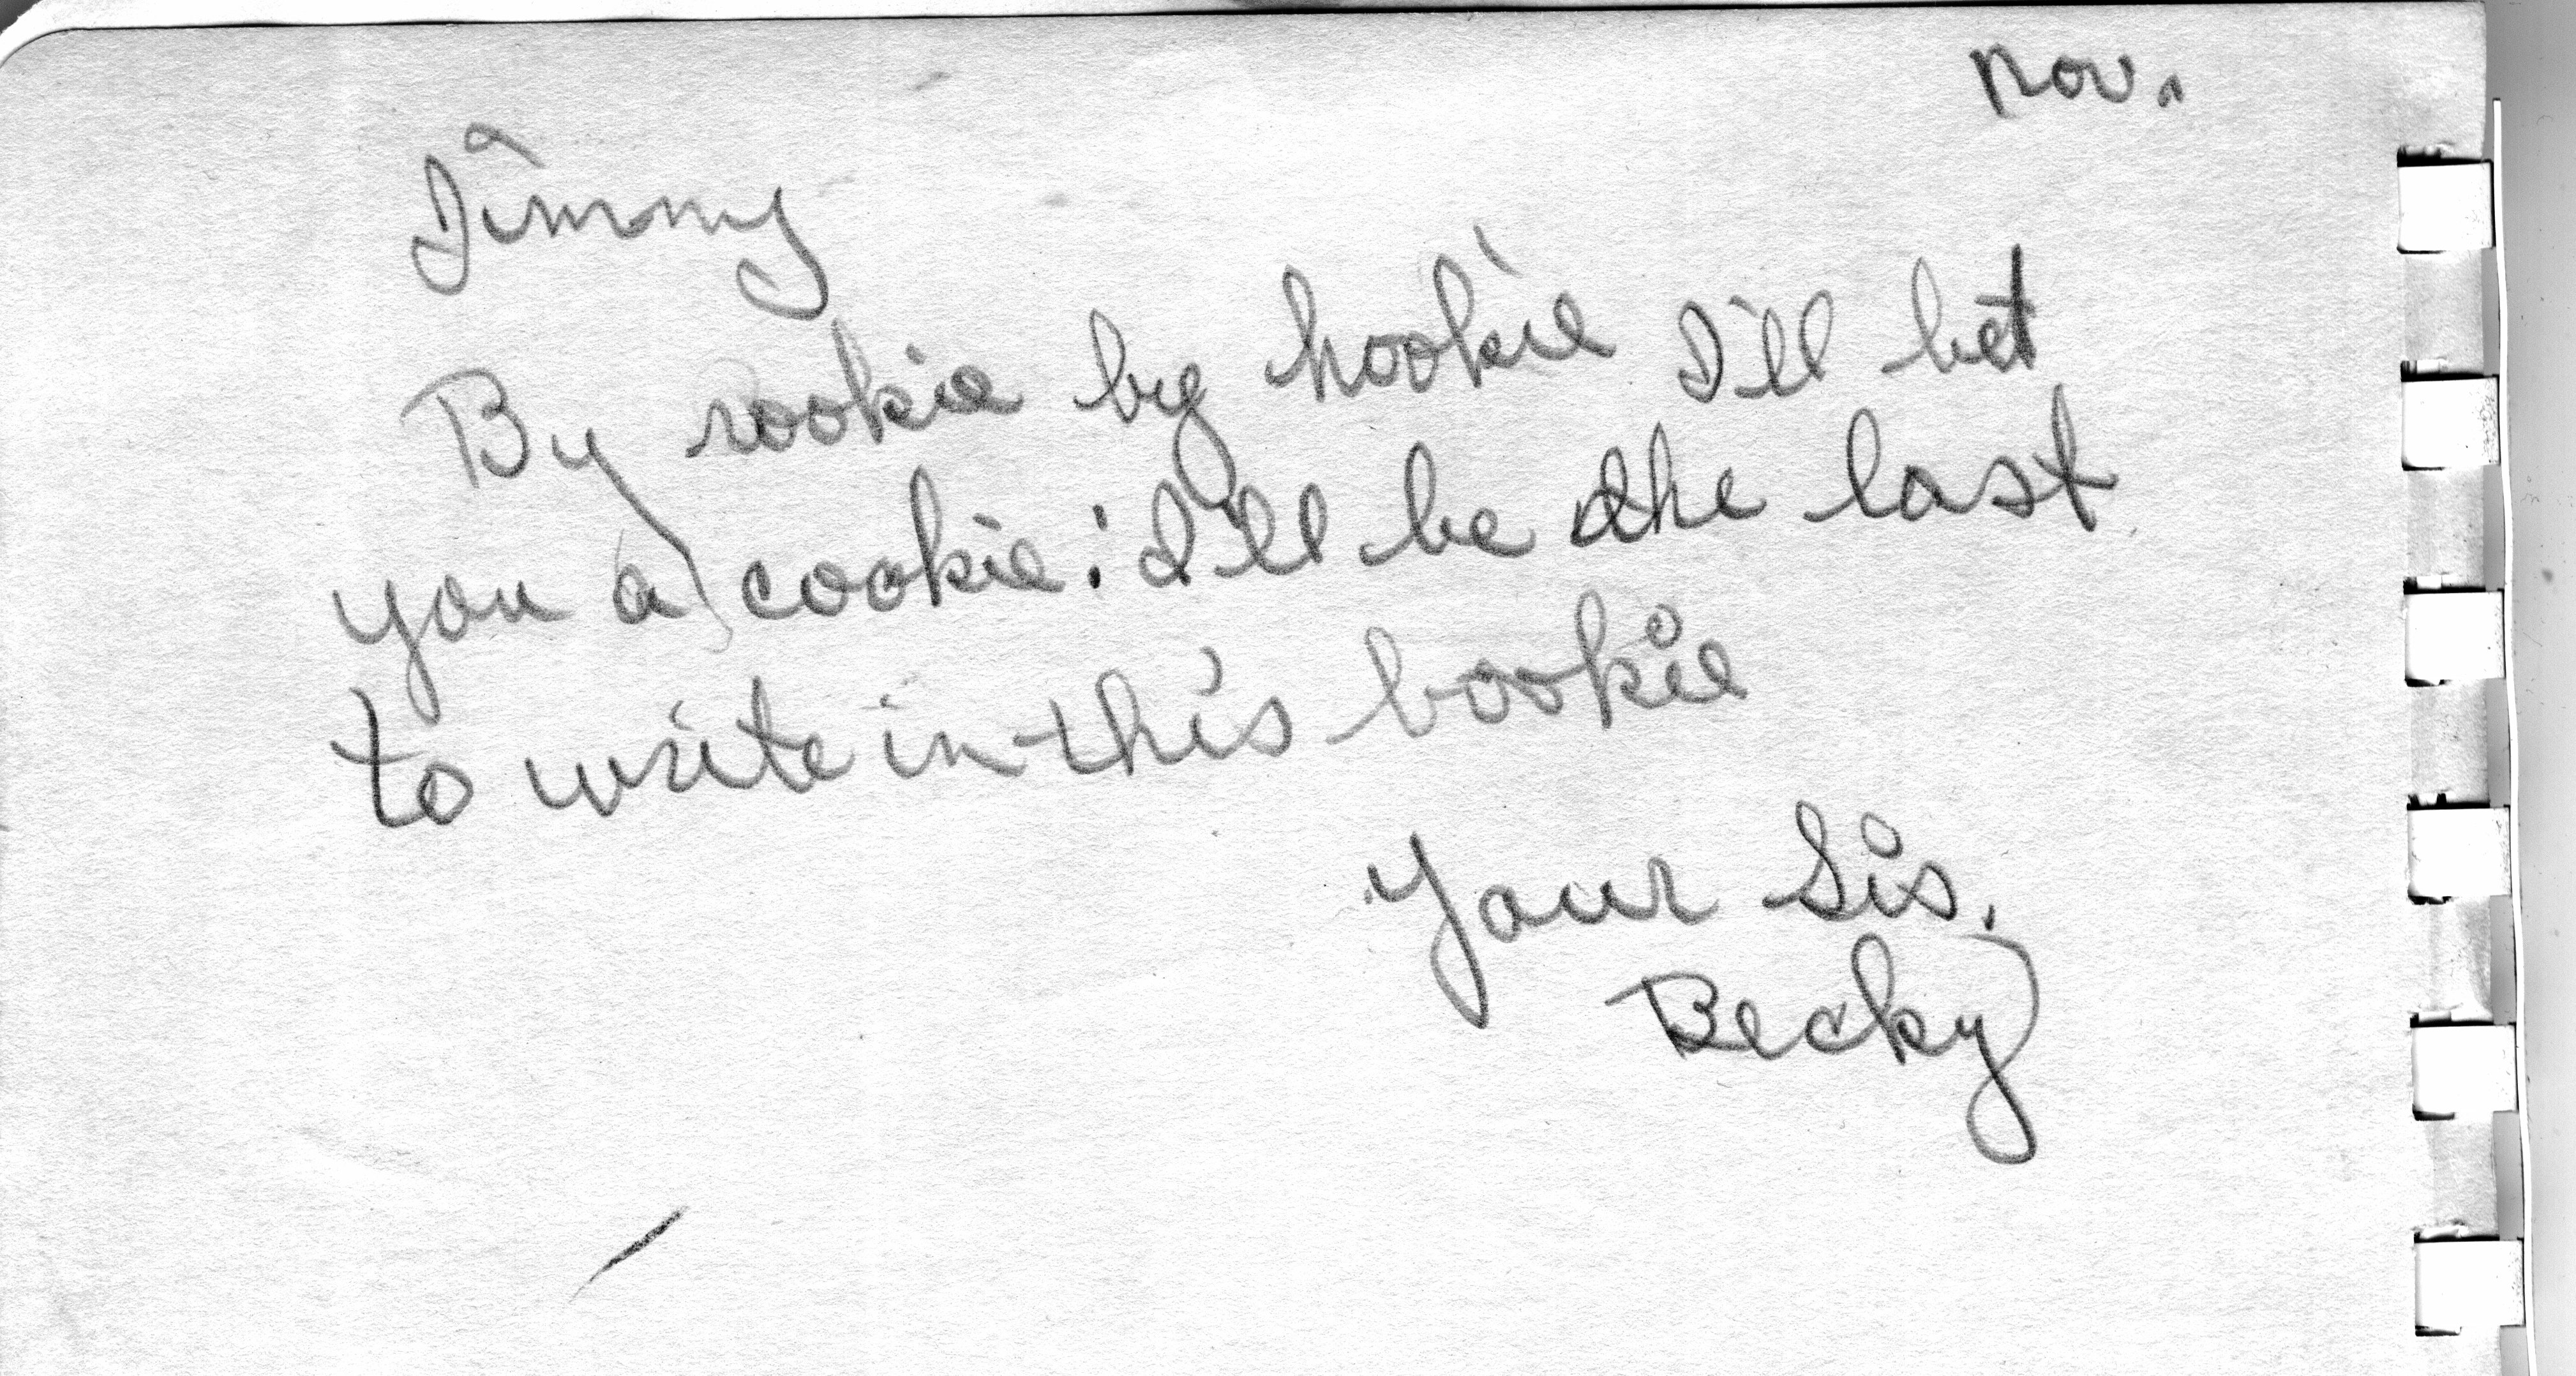 Nov.
Jimmy
By rookie by hookie I'll bet
you a cookie: I'll be the last
to write in this bookie
Your Sis.
Becky